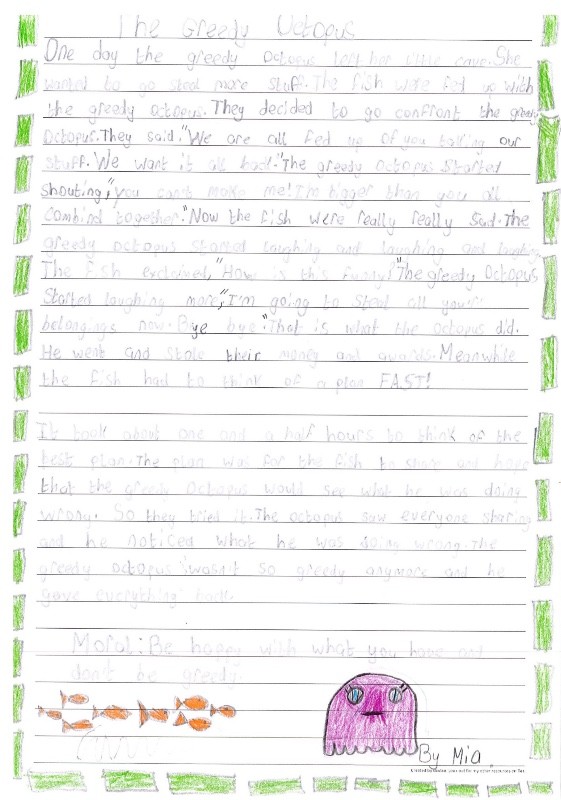 The Greedy Octopus
One day the greedy octopus left her little cave. She
wanted to go steal more stuff. The fish were fed up with
the greedy octopus. They decided to go confront the greedy
octopus. They said, "We are all fed up of you taking our
stuff. We want it all back." The greedy octopus started
shouting, "you can't make me! I'm bigger than you all
combind together." Now the fish were really really sad. The
greedy octopus started laughing and laughing and laughing.
The fish exclaimed, "How is this funny!" The greedy octopus
started laughing more, "I'm going to steal all your
belongings now. Bye bye." That is what the octopus did.
He went and stole their money and awards. Meanwhile
the fish had to think of a plan FAST!
It took about one and a half hours to think of the
best plan. The plan was for the fish to share and hope
that the greedy octopus would see what he was doing
wrong. So they tried it. The octopus saw everyone sharing
and he noticed what he was doing wrong. The
greedy octopus wasn't so greedy anymore and he
gave everything back.
Moral: Be happy with what you have and
don't be greedy.
By Mia